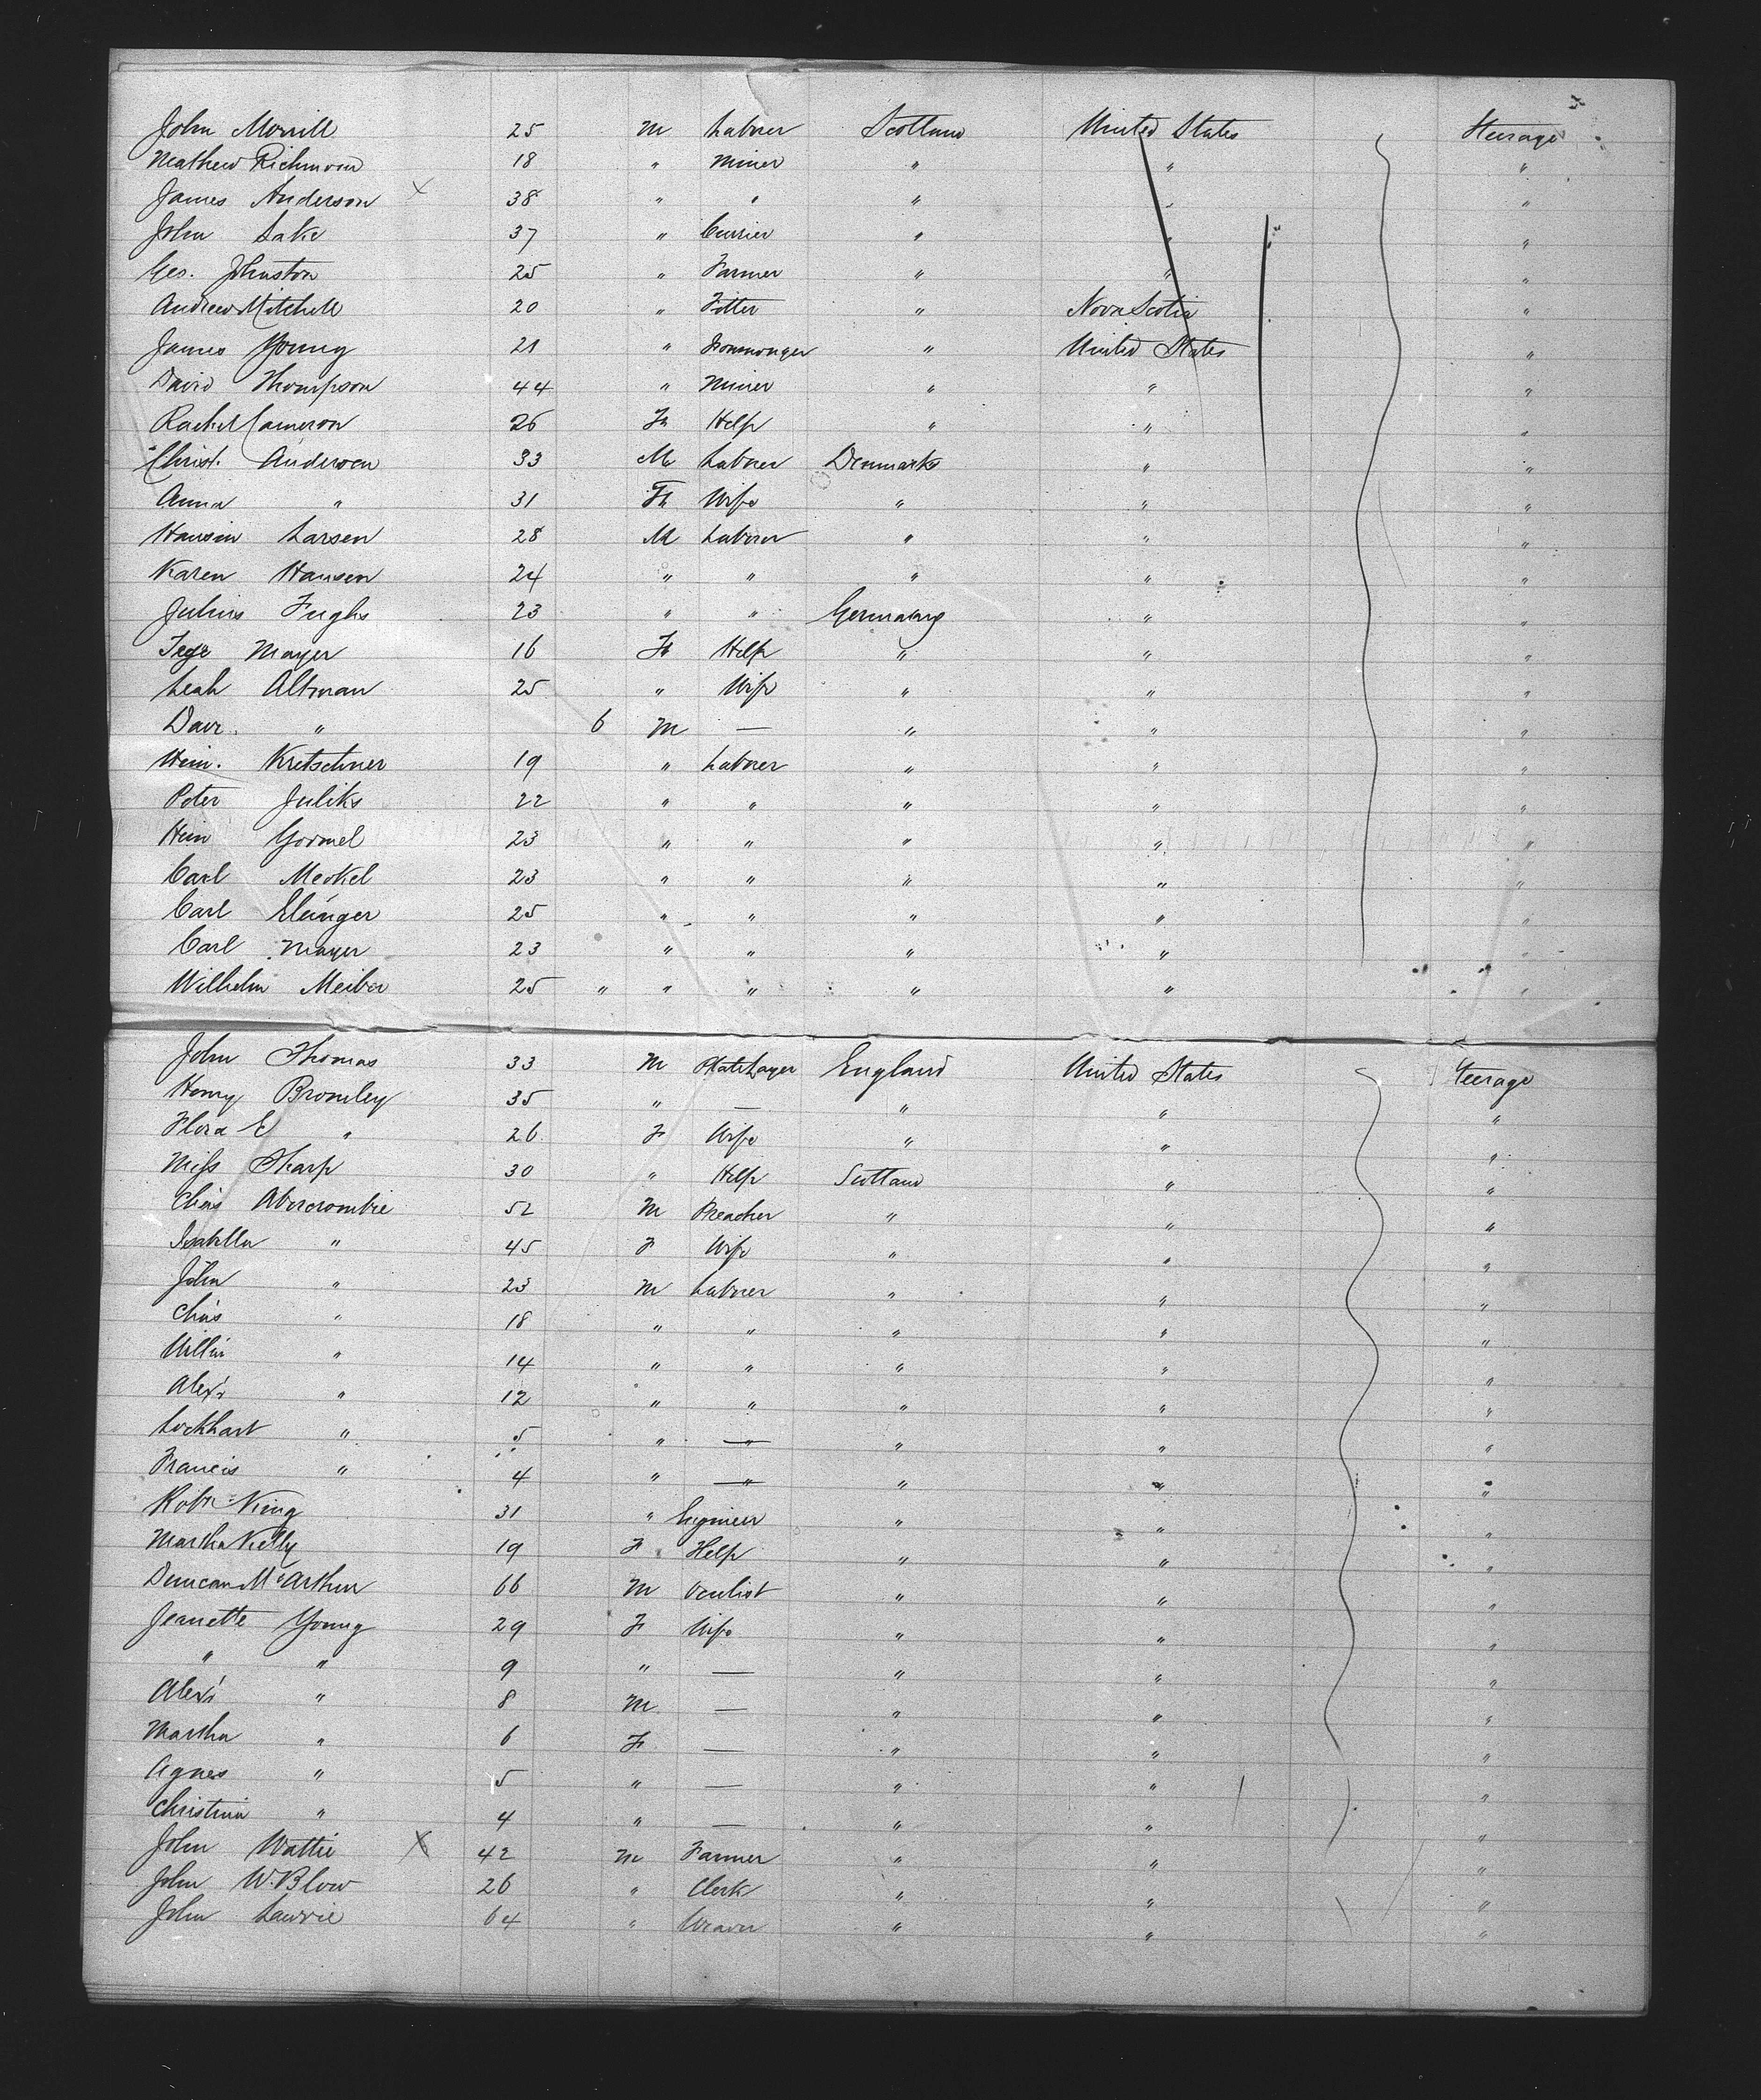 John Morrill 25 M Laborer Scotland United States Steerage
Mathew Richmond 18 " Miner " " "
James Anderson x 38 " " " " "
John Lake 37 " Currier " " "
Geo. Johnston 25 " Farmer " " "
Andrew Mitchell 20 " Fitter " Nova Scotia "
James Young 21 " Ironmonger " United States "
David Thompson 44 " Miner " " "
Rachel Cameron 26 F Help " " "
Christ. Andersen 33 M Laborer Denmark " "
Anna " 31 F Wife " " "
Larsen 28 M Laborer " " "
Karen Hansen 24 " " " " "
Julius Fughs 23 " " Germany " "
Mayer 16 F Help " " "
Leah Altman 25 " Wife " " "
" 6 M — " " "
Hein. Kretschner 19 " Laborer " " "
Peter Juliks 22 " " " " "
Hein 23 " " " " "
Carl Merkel 23 " " " " "
Carl 25 " " " " "
Carl Mayer 23 " " " " "
Wilhelm Meiber 25 " " " " " "
John Thomas 33 M Platelayer England United States Steerage
Henry Bromley 35 " — " " "
Flora E " 26 F Wife " " "
Miss Sharp 30 " Help Scotland " "
Chas Abercrombie 52 M Preacher " " "
Isabella " 45 F Wife " " "
John " 23 M Laborer " " "
Chas " 18 " " " " "
Willm " 14 " " " " "
Alexr " 12 " " " " "
Lockhart " 5 " — " " "
Francis " 4 " — " " "
Robt King 31 " Engineer " " "
Martha Kelly 19 F Help " " "
Duncan McArthur 66 M Oculist " " "
Jeanette Young 29 F Wife " " "
" " 9 " — " " "
Alexr " 8 M — " " "
Martha " 6 F — " " "
Agnes " 5 " — " " "
Christina " 4 " — " " "
John Wattie X 42 M Farmer " " "
John W. Blow 26 " Clerk " " "
John Lawrie 64 " Weaver " " "